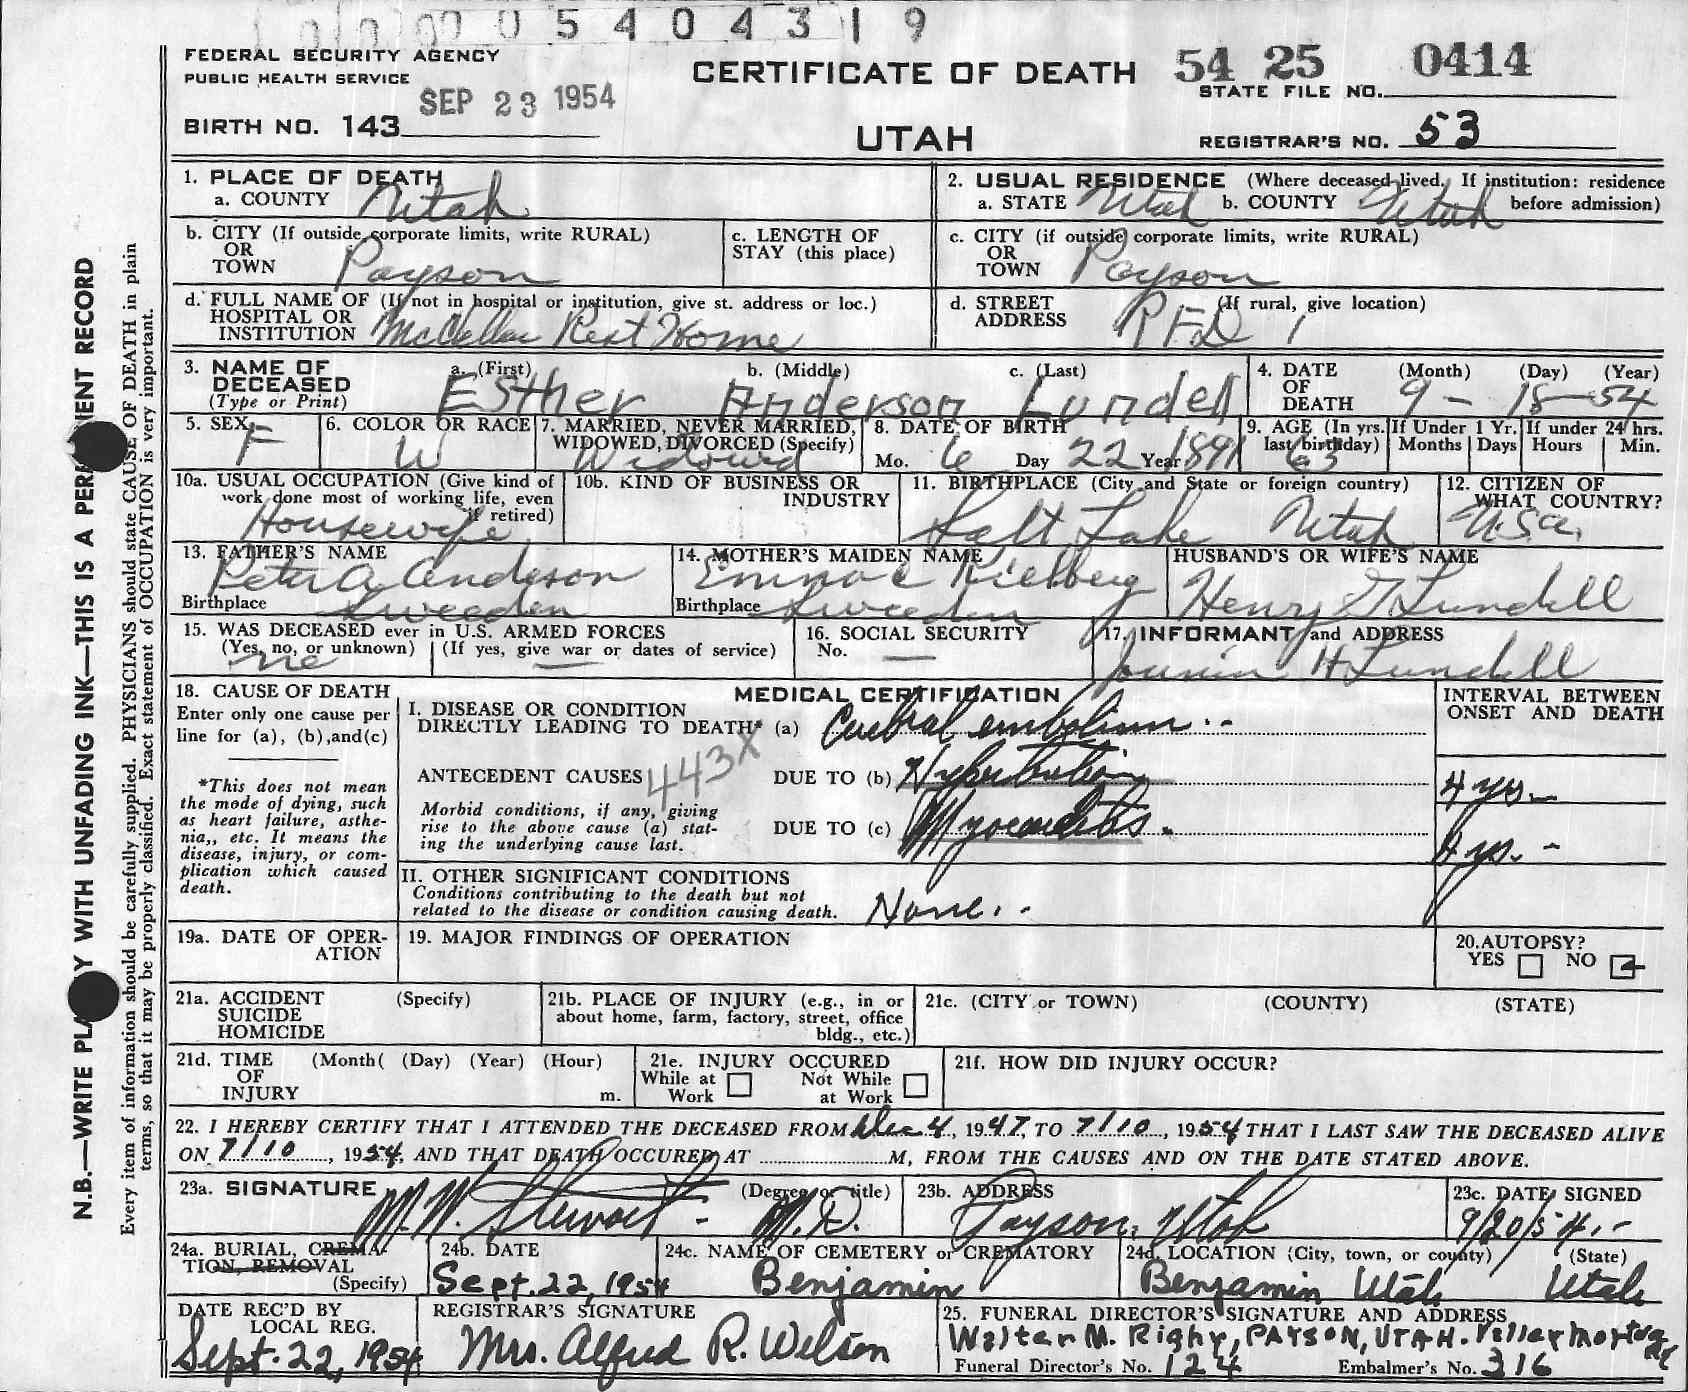 0 5 4 0 4 3 1 9
FEDERAL SECURITY AGENCY
PUBLIC HEALTH SERVICE
SEP 23 1954
BIRTH NO. 143
CERTIFICATE OF DEATH
UTAH
54 25 0414
STATE FILE NO.
REGISTRAR'S NO. 53
1. PLACE OF DEATH
a. COUNTY Utah
2. USUAL RESIDENCE (Where deceased lived. If institution: residence
a. STATE Utah b. COUNTY Utah before admission)
b. CITY (If outside corporate limits, write RURAL)
OR
TOWN Payson
c. LENGTH OF
STAY (this place)
c. CITY (if outside corporate limits, write RURAL)
OR
TOWN Payson
d. FULL NAME OF (If not in hospital or institution, give st. address or loc.)
HOSPITAL OR
INSTITUTION Rest Home
d. STREET (If rural, give location)
ADDRESS RFD 1
3. NAME OF a. (First) b. (Middle) c. (Last)
DECEASED
(Type or Print) Esther Anderson Lundell
4. DATE (Month) (Day) (Year)
OF
DEATH 9 - 18 - 54
5. SEX F
6. COLOR OR RACE
W
7. MARRIED, NEVER MARRIED,
WIDOWED, DIVORCED (Specify)
Widowed
8. DATE OF BIRTH
Mo. 6 Day 22 Year 1891
9. AGE (In yrs. If Under 1 Yr. If under 24 hrs.
last birthday) Months Days Hours Min.
63
10a. USUAL OCCUPATION (Give kind of
work done most of working life, even
if retired)
Housewife
10b. KIND OF BUSINESS OR
INDUSTRY
11. BIRTHPLACE (City and State or foreign country)
Salt Lake Utah
12. CITIZEN OF
WHAT COUNTRY?
U.S.A.
13. FATHER'S NAME
Peter A Anderson
Birthplace Sweeden
14. MOTHER'S MAIDEN NAME
Emma C
Birthplace Sweeden
HUSBAND'S OR WIFE'S NAME
Henry G Lundell
15. WAS DECEASED ever in U.S. ARMED FORCES
(Yes, no, or unknown) (If yes, give war or dates of service)
no —
16. SOCIAL SECURITY
No. —
17. INFORMANT and ADDRESS
H Lundell
18. CAUSE OF DEATH
Enter only one cause per
line for (a), (b),and(c)
*This does not mean
the mode of dying, such
as heart failure, asthe-
nia,, etc. It means the
disease, injury, or com-
plication which caused
death.
MEDICAL CERTIFICATION
I. DISEASE OR CONDITION
DIRECTLY LEADING TO DEATH* (a) Cerebral embolism
ANTECEDENT CAUSES 443X
DUE TO (b) Hypertension
Morbid conditions, if any, giving
rise to the above cause (a) stat-
ing the underlying cause last.
DUE TO (c) Myocarditis.
INTERVAL BETWEEN
ONSET AND DEATH
4 yrs.
4 yrs. -
II. OTHER SIGNIFICANT CONDITIONS
Conditions contributing to the death but not
related to the disease or condition causing death.
None.
19a. DATE OF OPER-
ATION
19. MAJOR FINDINGS OF OPERATION
20.AUTOPSY?
YES NO
21a. ACCIDENT (Specify)
SUICIDE
HOMICIDE
21b. PLACE OF INJURY (e.g., in or
about home, farm, factory, street, office
bldg., etc.)
21c. (CITY or TOWN) (COUNTY) (STATE)
21d. TIME (Month( (Day) (Year) (Hour)
OF
INJURY m.
21e. INJURY OCCURED
While at Not While
Work at Work
21f. HOW DID INJURY OCCUR?
22. I HEREBY CERTIFY THAT I ATTENDED THE DECEASED FROM Dec 4, 1947, TO 7/10, 1954 THAT I LAST SAW THE DECEASED ALIVE
ON 7/10, 1954, AND THAT DEATH OCCURED AT M, FROM THE CAUSES AND ON THE DATE STATED ABOVE.
23a. SIGNATURE (Degree or title)
M.W. Stewart - M.D.
23b. ADDRESS
Payson, Utah
23c. DATE SIGNED
9/20/54.-
24a. BURIAL, CREMA-
TION, REMOVAL
(Specify)
24b. DATE
Sept. 22, 1954
24c. NAME OF CEMETERY or CREMATORY
Benjamin
24d. LOCATION (City, town, or county) (State)
Benjamin Utah Utah
DATE REC'D BY
LOCAL REG.
Sept. 22, 1954
REGISTRAR'S SIGNATURE
Mrs. Alfred R. Wilson
25. FUNERAL DIRECTOR'S SIGNATURE AND ADDRESS
Walter M. Rigby, PAYSON, UTAH. Valley Mortuary
Funeral Director's No. 124 Embalmer's No. 316
N.B.—WRITE PLAINLY WITH UNFADING INK—THIS IS A PERMANENT RECORD
Every item of information should be carefully supplied. PHYSICIANS should state CAUSE OF DEATH in plain
terms, so that it may be properly classified. Exact statement of OCCUPATION is very important.